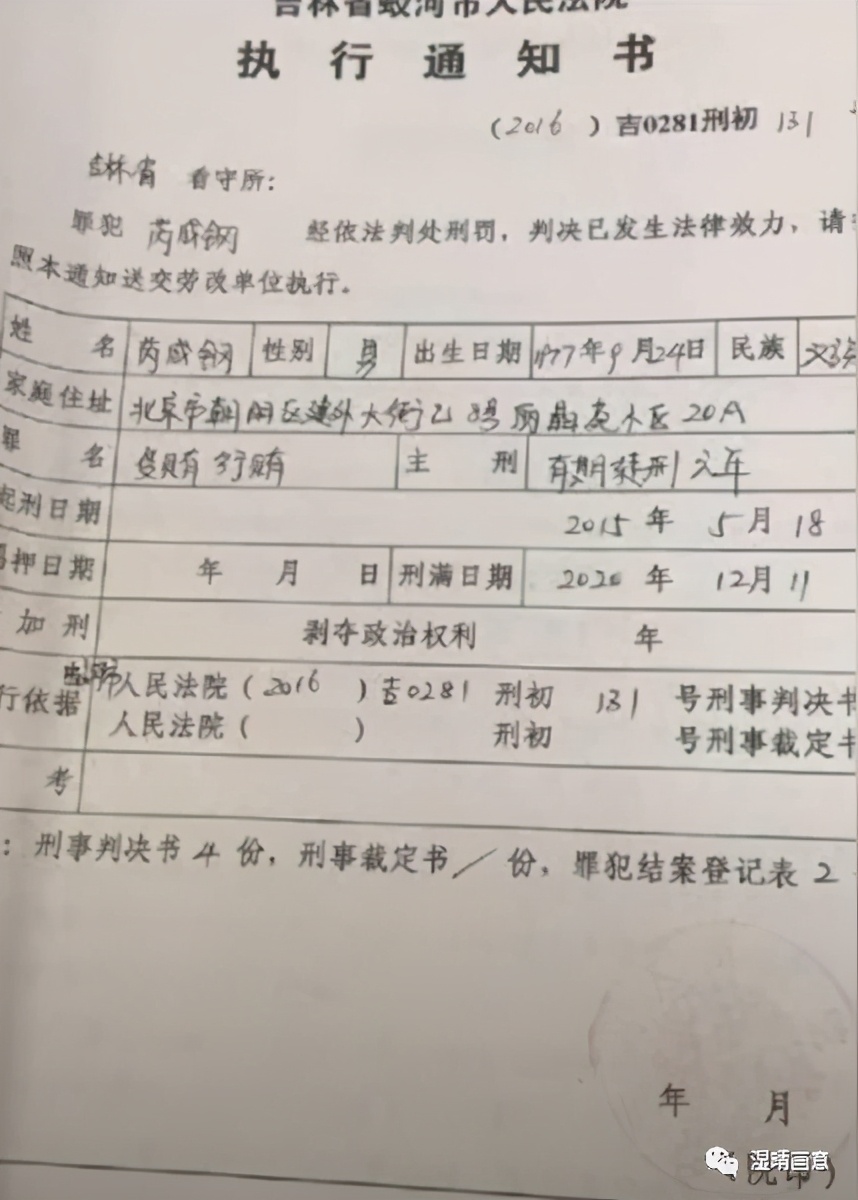 吉林省蛟河市人民法院
执行通知书
(2016)吉0281刑初 131
吉林省 看守所：
罪犯 芮成钢 经依法判处刑罚，判决已发生法律效力，请
照本通知送交劳改单位执行。
姓名 芮成钢 性别 男 出生日期 1977年9月24日 民族 汉族
家庭住址 北京市朝阳区建外大街乙8号丽晶苑小区20A
罪名 受贿 行贿 主刑 有期徒刑六年
起刑日期 2015年5月18
押日期 年 月 日 刑满日期 2020年12月11
加刑 剥夺政治权利 年
行依据 人民法院(2016)吉0281刑初 131 号刑事判决书
人民法院( ) 刑初 号刑事裁定书
考
：刑事判决书4份，刑事裁定书/份，罪犯结案登记表2
年 月
院印）
湿晴画意